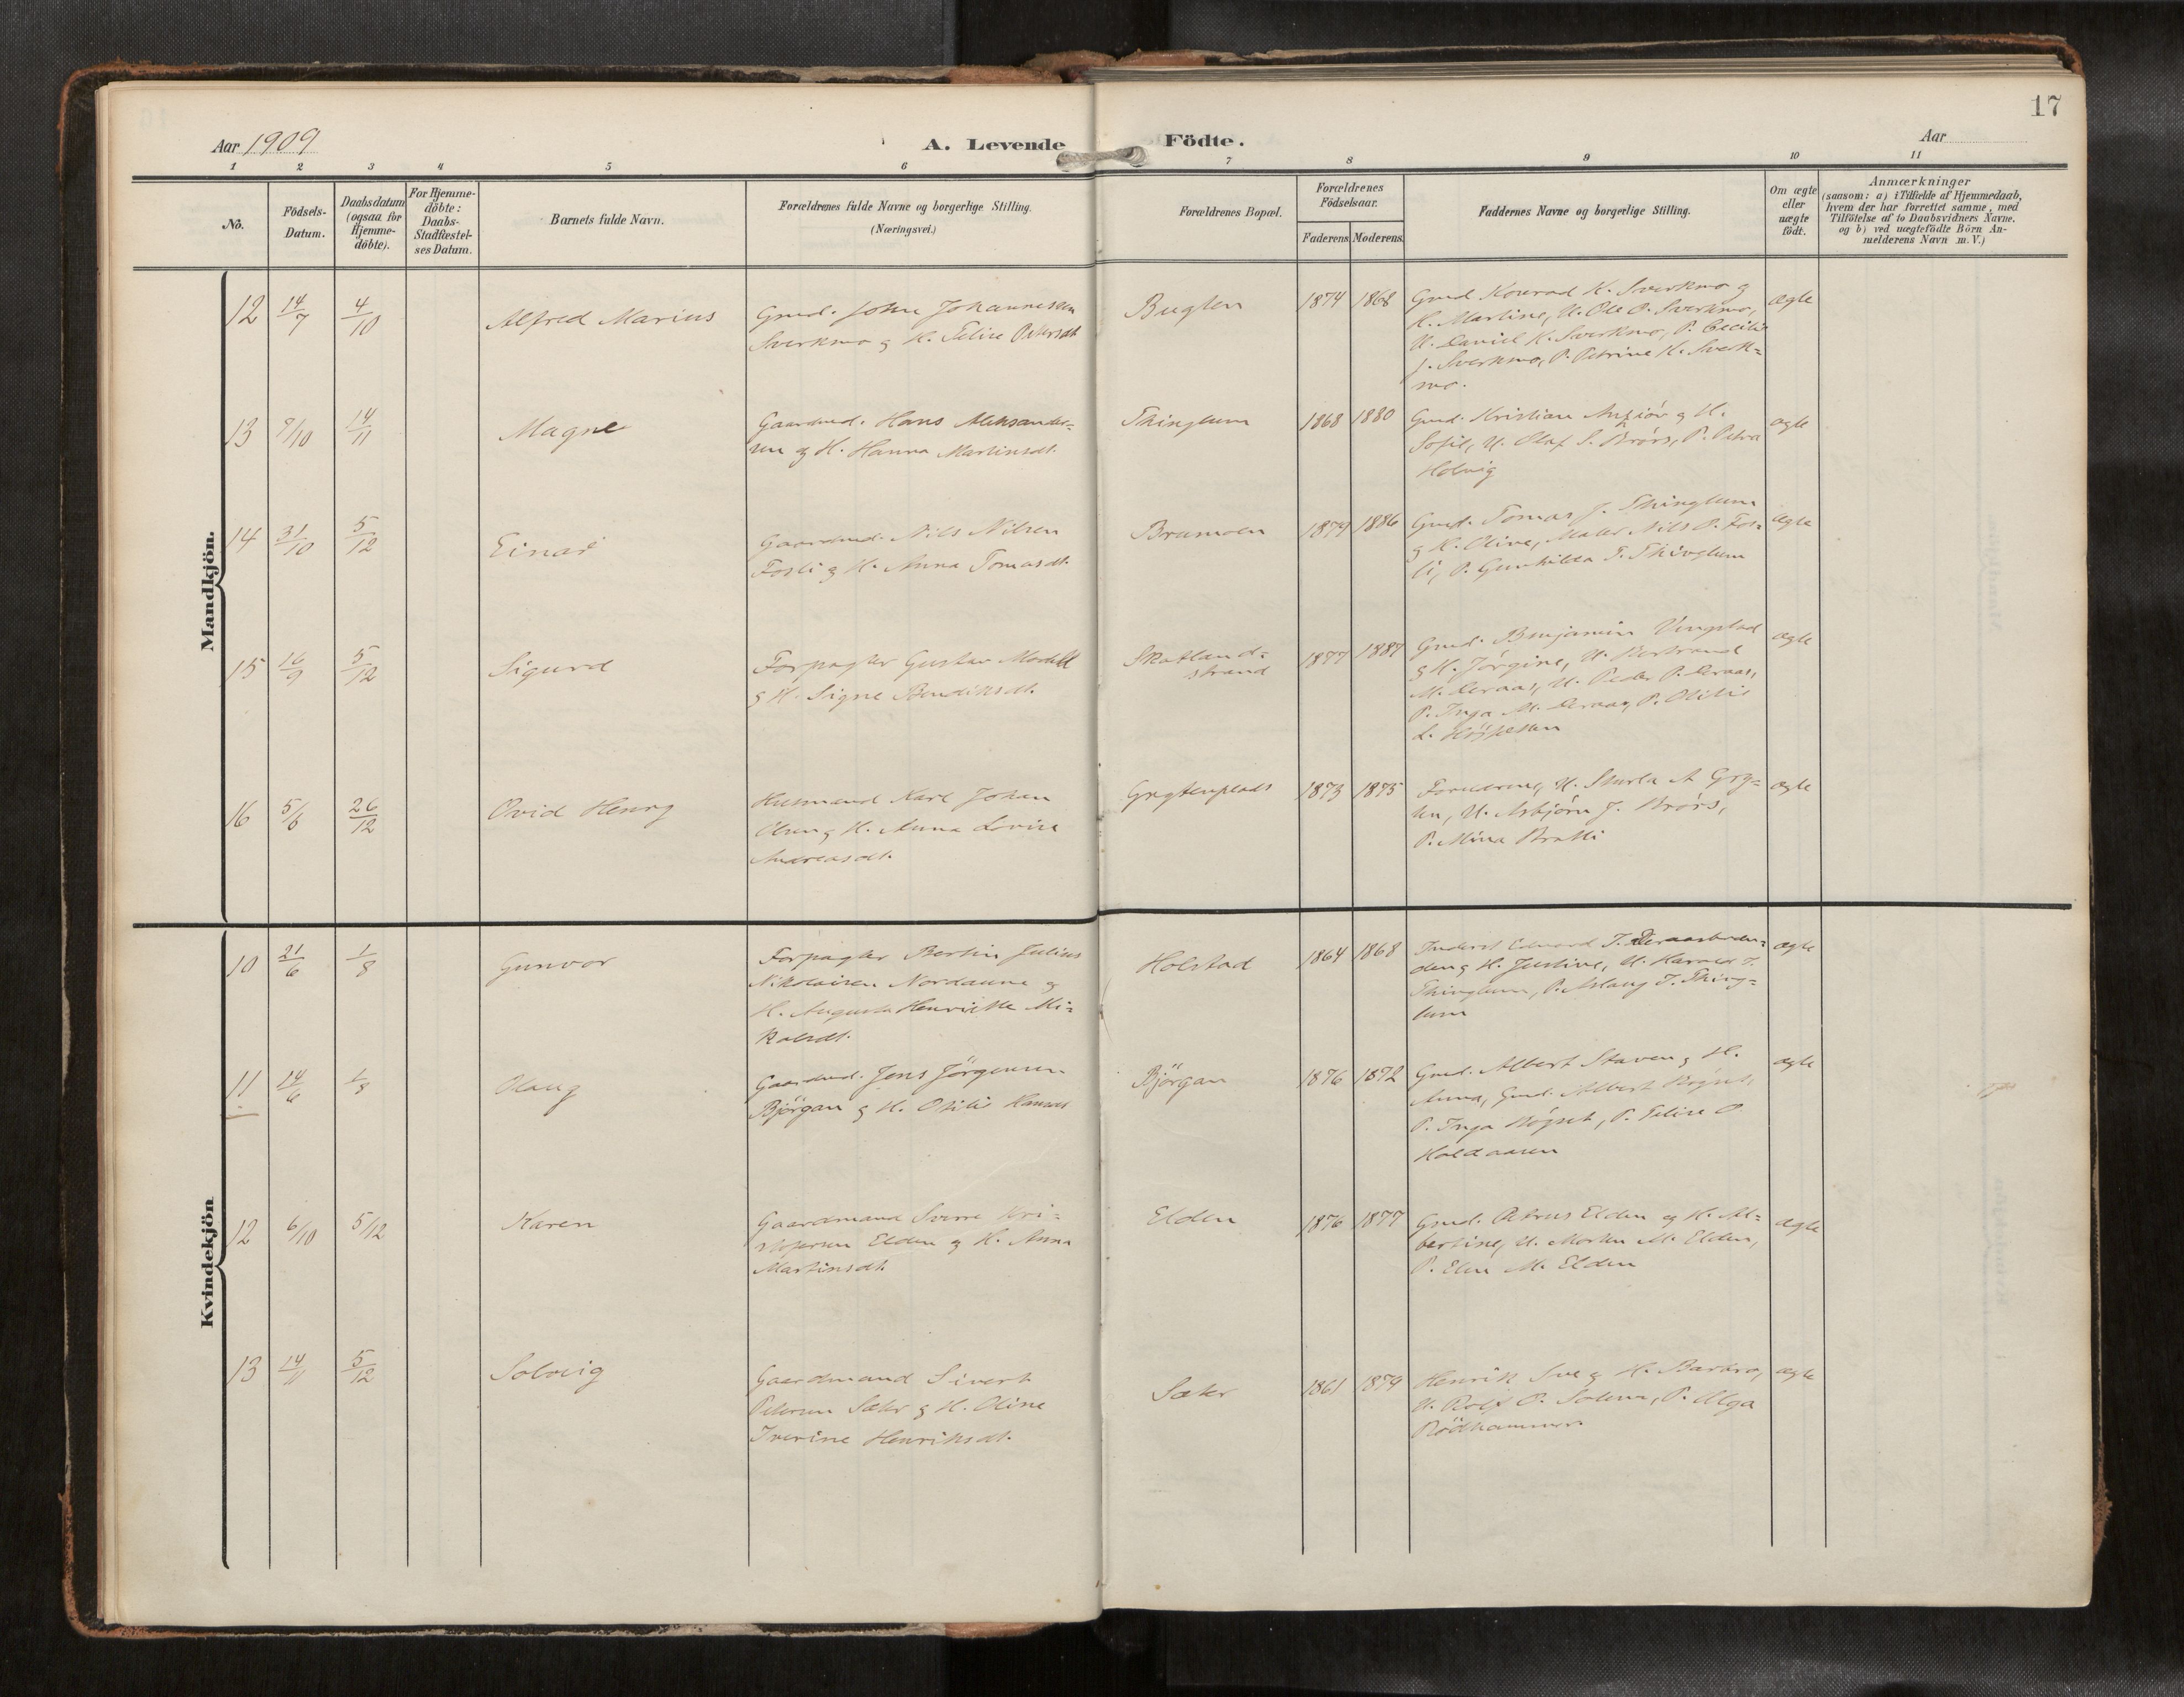 17
Aar 1909
A. Levende Födte.
Aar
1 2 3 4 5 6 7 8 9 10 11
No.
Födsels-
Datum.
Daabsdatum
(ogsaa for
Hjemme-
döbte).
For Hjemme-
döbte:
Daabs-
Stadfæstel-
ses Datum.
Barnets fulde Navn.
Forældrenes fulde Navne og borgerlige Stilling.
(Næringsvei.)
Forældrenes Bopæl.
Forældrenes
Födselsaar.
Faderens Moderens.
Faddernes Navne og borgerlige Stilling.
Om ægte
eller
uægte
födt.
Anmærkninger
(saasom: a) i Tilfælde af Hjemmedaab,
hvem der har forrettet samme, med
Tilföielse af to Daabsvidners Navne.
og b) ved uægtefödte Börn An-
melderens Navn m. V.)
Mandkjön.
12 14/7 4/10 Alfred Marius
Gmd. John Johannesen
Sverkmo og H. Petersdt.
Bugten
1874 1868
Gmd Konrad K. Sverkmo og
H. Martine, U. Ole O. Sverkmo,
U. Daniel K. Sverkmo, P. Cecilie
J. Sverkmo, P. Petrine K. Sverk=
mo.
ægte
13 8/10 14/11 Magne
Gaardmd. Hans Aleksander=
sen og H. Hanna Martinsdt.
Thinglum
1868 1880
Gmd. Kristian og H.
Sofie, U. Olaf S. Brörs, P. Petra
Holvig
ægte
14 31/10 5/12 Einar
Gaardmd. Nils Nilsen
Fosli og H. Anna Tomasdt.
Bramoen
1879 1886
Gmd. Tomas J. Thinglum
og H. Oline, Maler Nils P. Fos=
li, P. Gunhilda T. Thinglum
ægte
15 16/9 5/12 Sigurd
Forpagter Gustav Modell
og H. Signe Bendiksdt.
Skatland=
strand
1877 1887
Gmd. Benjamin Vengstad
og H. Jörgine, U. Bertrand
M. Deraas, U. Peder P. Deraas,
P. Inga M. Deraas, P. Otilie
L.
ægte
16 5/6 26/12 Ovid Henry
Husmand Karl Johan
Olsen og H. Anna Lovise
Andreasdt.
Grytenplads
1873 1875
Forældrene, U. Sturla A Gry=
ten, U. Asbjörn J. Brörs,
P. Mina Bratli
ægte
Kvindekjön
10 21/6 1/8 Gunvor
Forpagter Bertin Julius
Nikolaisen Nordaune og
H. Augusta Henriette Mi=
kalsdt.
Holstad
1864 1868
Inderst Edvard J. Deraasbakn=
den og H. Justine, U. Harald T.
Thinglum, P. Aslaug T. Thing=
lum
ægte
11 14/6 1/8 Olaug
Gaardmd. Jens Jörgensen
Björgan og H. Otilie
Björgan
1876 1872
Gmd. Albert Staven og H.
Anna, Gmd. Albert Rögset,
P. Inga Rögset, P. Elise O
Holdaasen
ægte
12 6/10 5/12 Karen
Gaardmand Sverre Kri=
stofersen Elden og H. Anna
Martinsdt.
Elden
1876 1877
Gmd. Petrus Elden og H. Al=
bertine, U. Morten M. Elden,
P. Elen M. Elden
ægte
13 14/11 5/12 Solveig
Gaardmand Sivert
Petersen Sæter og H. Oline
Iverine Henriksdt.
Sæter
1861 1879
Henrik Sve og H. Barbro,
U. Rolf O. Solem, P. Olga
Rödhammer
ægte